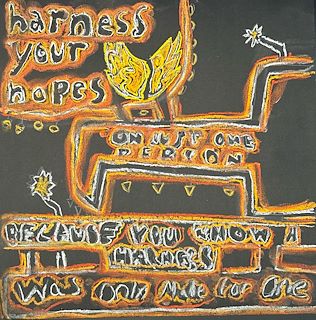 harness
your
hopes
ON JUST ONE
PERSON
BECAUSE YOU KNOW A
HARNESS
Was Only Made for One